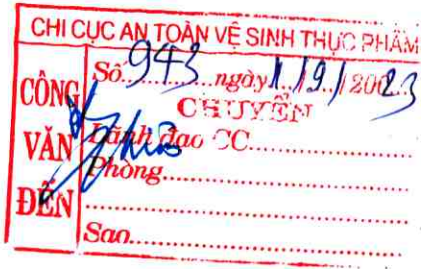 CHI CỤC AN TOÀN VỆ SINH THỰC PHẨM
CÔNG VĂN ĐẾN
Số 943 ngày 1/9/2023
CHUYỂN
Lãnh đạo CC
Phòng
Sao